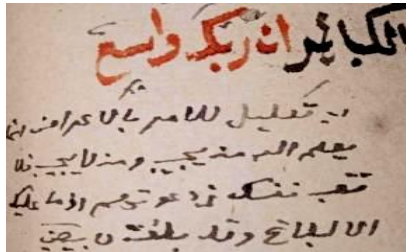 الكبائر ان ربك واسع
تعليل للامر بالاعراض انما
يعلم الله من يجيب ومن لا يجيب فلا
تتعب نفسك في دعوتهم اذ ما عليك
الا البلاغ وقد بلغت